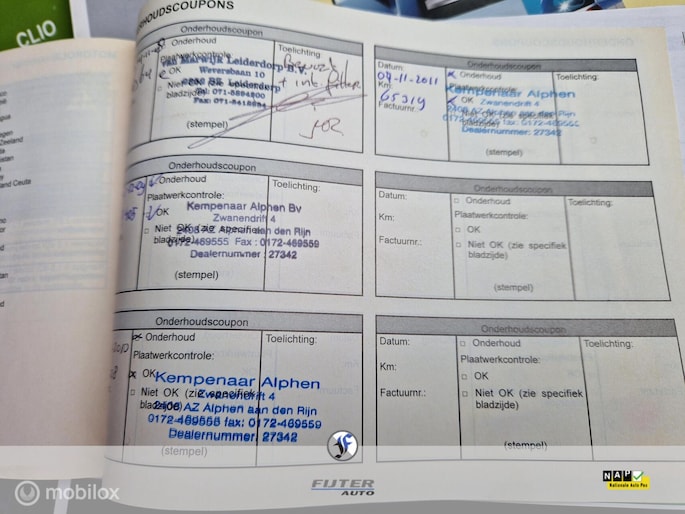 CLIO
ONDERHOUDSCOUPONS
Onderhoudscoupon
Onderhoud
Toelichting:
Plaatwerkcontrole:
OK
bladzijde)
(stempel)
van Marwijk Leiderdorp B.V.
Weversbaan 10
Leiderdorp
+ int. filter
Onderhoudscoupon
Datum:
04-11-2011
Km:
65319
Factuurnr.:
Onderhoud
Toelichting:
Plaatwerkcontrole:
OK
bladzijde)
(stempel)
Kempenaar Alphen
Zwanendrift 4
2408 AZ Alphen aan den Rijn
0172-469555 fax: 0172-469555
Dealernummer: 27342
Onderhoudscoupon
Onderhoud
Toelichting:
Plaatwerkcontrole:
OK
Niet OK (zie specifiek
bladzijde)
(stempel)
Kempenaar Alphen Bv
Zwanendrift 4
2408 AZ Alphen aan den Rijn
0172-469555 Fax : 0172-469559
Dealernummer: 27342
Onderhoudscoupon
Datum:
Km:
Factuurnr.:
Onderhoud
Toelichting:
Plaatwerkcontrole:
OK
Niet OK (zie specifiek
bladzijde)
(stempel)
Onderhoudscoupon
Onderhoud
Toelichting:
Plaatwerkcontrole:
OK
Niet OK (zie specifiek
bladzijde)
(stempel)
Kempenaar Alphen
Zwanendrift 4
2408 AZ Alphen aan den Rijn
0172-469555 fax: 0172-469559
Dealernummer: 27342
Onderhoudscoupon
Datum:
Km:
Factuurnr.:
Onderhoud
Toelichting:
Plaatwerkcontrole:
OK
Niet OK (zie specifiek
bladzijde)
(stempel)
mobilox
FIJTER
AUTO
NAP
Nationale Auto Pas